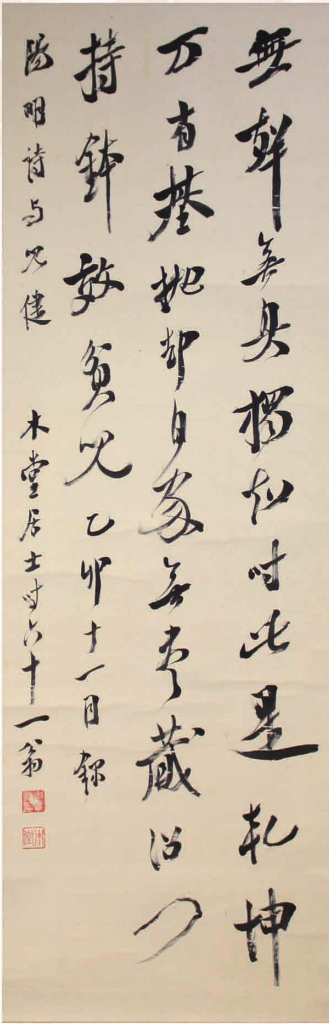 無聲無臭獨知时此是乾坤
万有基拋却自家無尽藏沿门
持鉢效貧児乙卯十一月録
陽明詩与児健
木堂居士时六十一翁
木堂